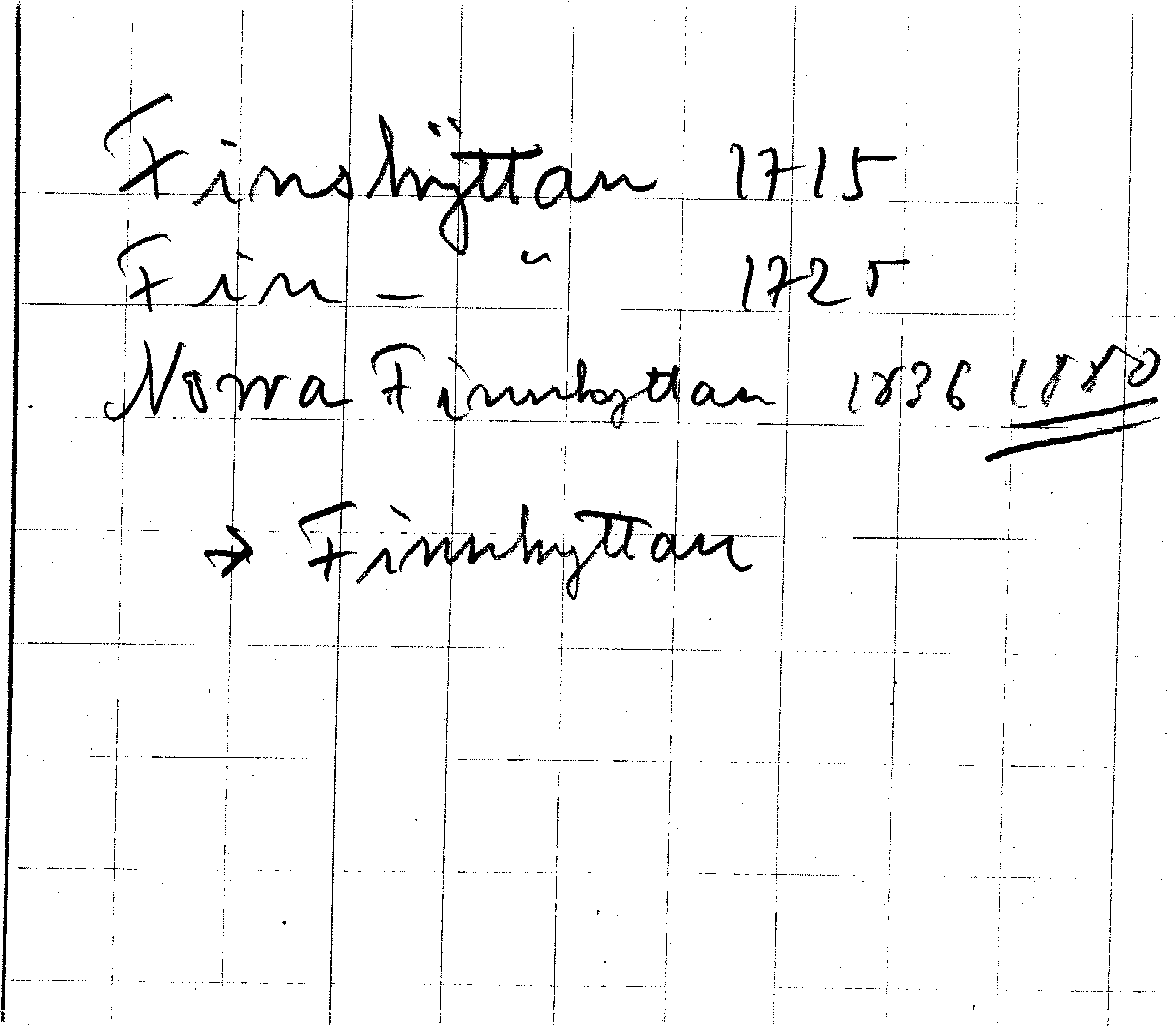 Finshÿttan 1715
Fin - " 1725
Norra Finnhyttan 1836 1880
→ Finnhyttan